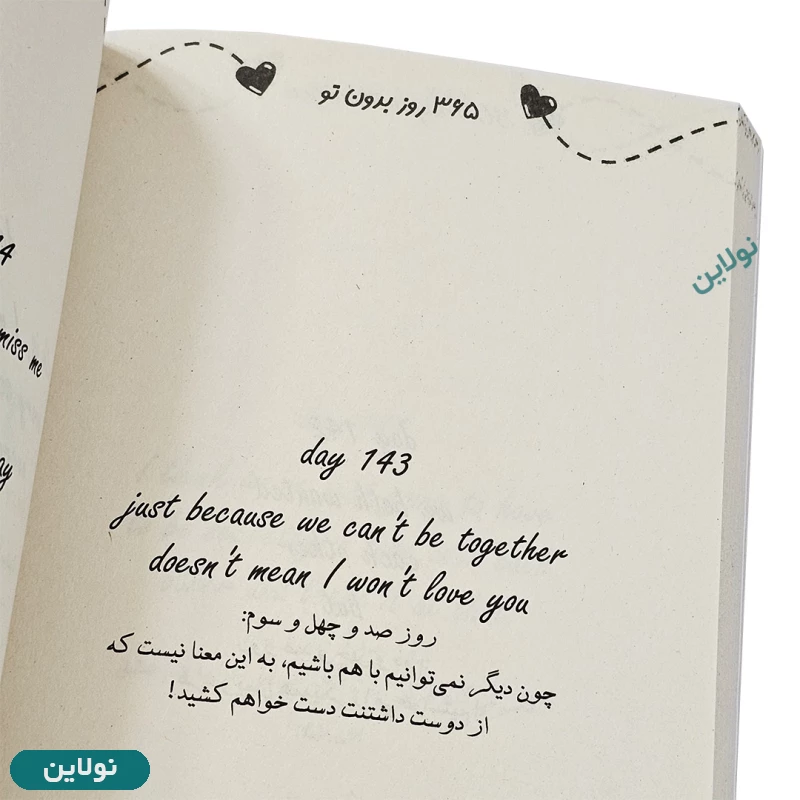 ۳۶۵ روز بدون تو
نولاین
miss me
day 143
just because we can't be together
doesn't mean I won't love you
روز صد و چهل و سوم:
چون دیگر نمی‌توانیم با هم باشیم، به این معنا نیست که
از دوست داشتنت دست خواهم کشید!
نولاین